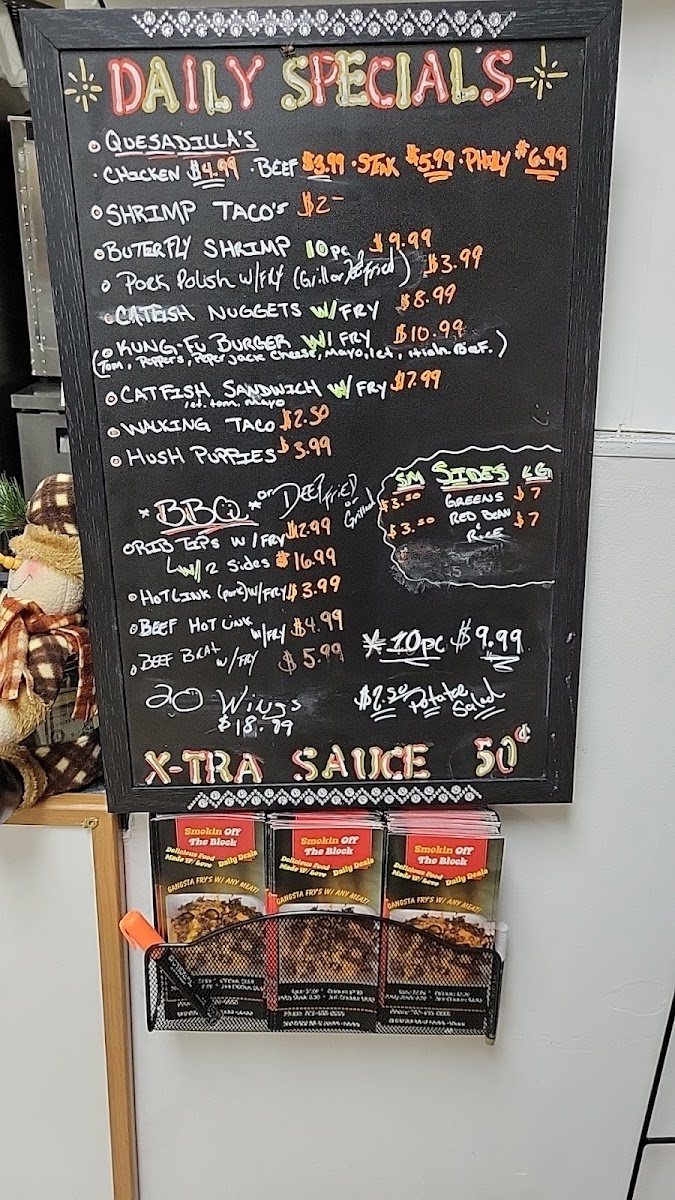 DAILY SPECIAL'S
QUESADILLA'S
CHICKEN $4.99 · BEEF $3.99 · STEAK $5.99 · PHILLY $6.99
SHRIMP TACO'S $2-
BUTERFLY SHRIMP 10pc $9.99
PORK POLISH W/FRY (Grill or DeepFried) $3.99
CATFISH NUGGETS W/ FRY $8.99
KUNG-FU BURGER W/ FRY $10.99
(Tom, Peppers, Peper jack cheese, Mayo, let, 1/2 lb Beef.)
CATFISH SANDWICH W/ FRY $7.99
let. tom. mayo
WALKING TACO $2.50
HUSH PUPPIES $3.99
SM SIDES LG
$3.50 GREENS $7
$3.50 RED BEAN & RICE $7
*BBQ* or DEEPFRIED or Grilled
RIB TIPS W/FRY $12.99
W/ 2 Sides $16.99
HOTLINK (pork) W/FRY $3.99
BEEF HOT LINK W/FRY $4.99
BEEF BRAT W/FRY $5.99
* 10pc $9.99
20 Wings
$18.99
$2.50 Potatoe Salad
X-TRA SAUCE 50¢
Smokin Off The Block
Delicious Food
Made W/ Love
Daily Deals
GANGSTA FRY'S W/ ANY MEAT!
Smokin Off The Block
Delicious Food
Made W/ Love
Daily Deals
GANGSTA FRY'S W/ ANY MEAT!
Smokin Off The Block
Delicious Food
Made W/ Love
Daily Deals
GANGSTA FRY'S W/ ANY MEAT!